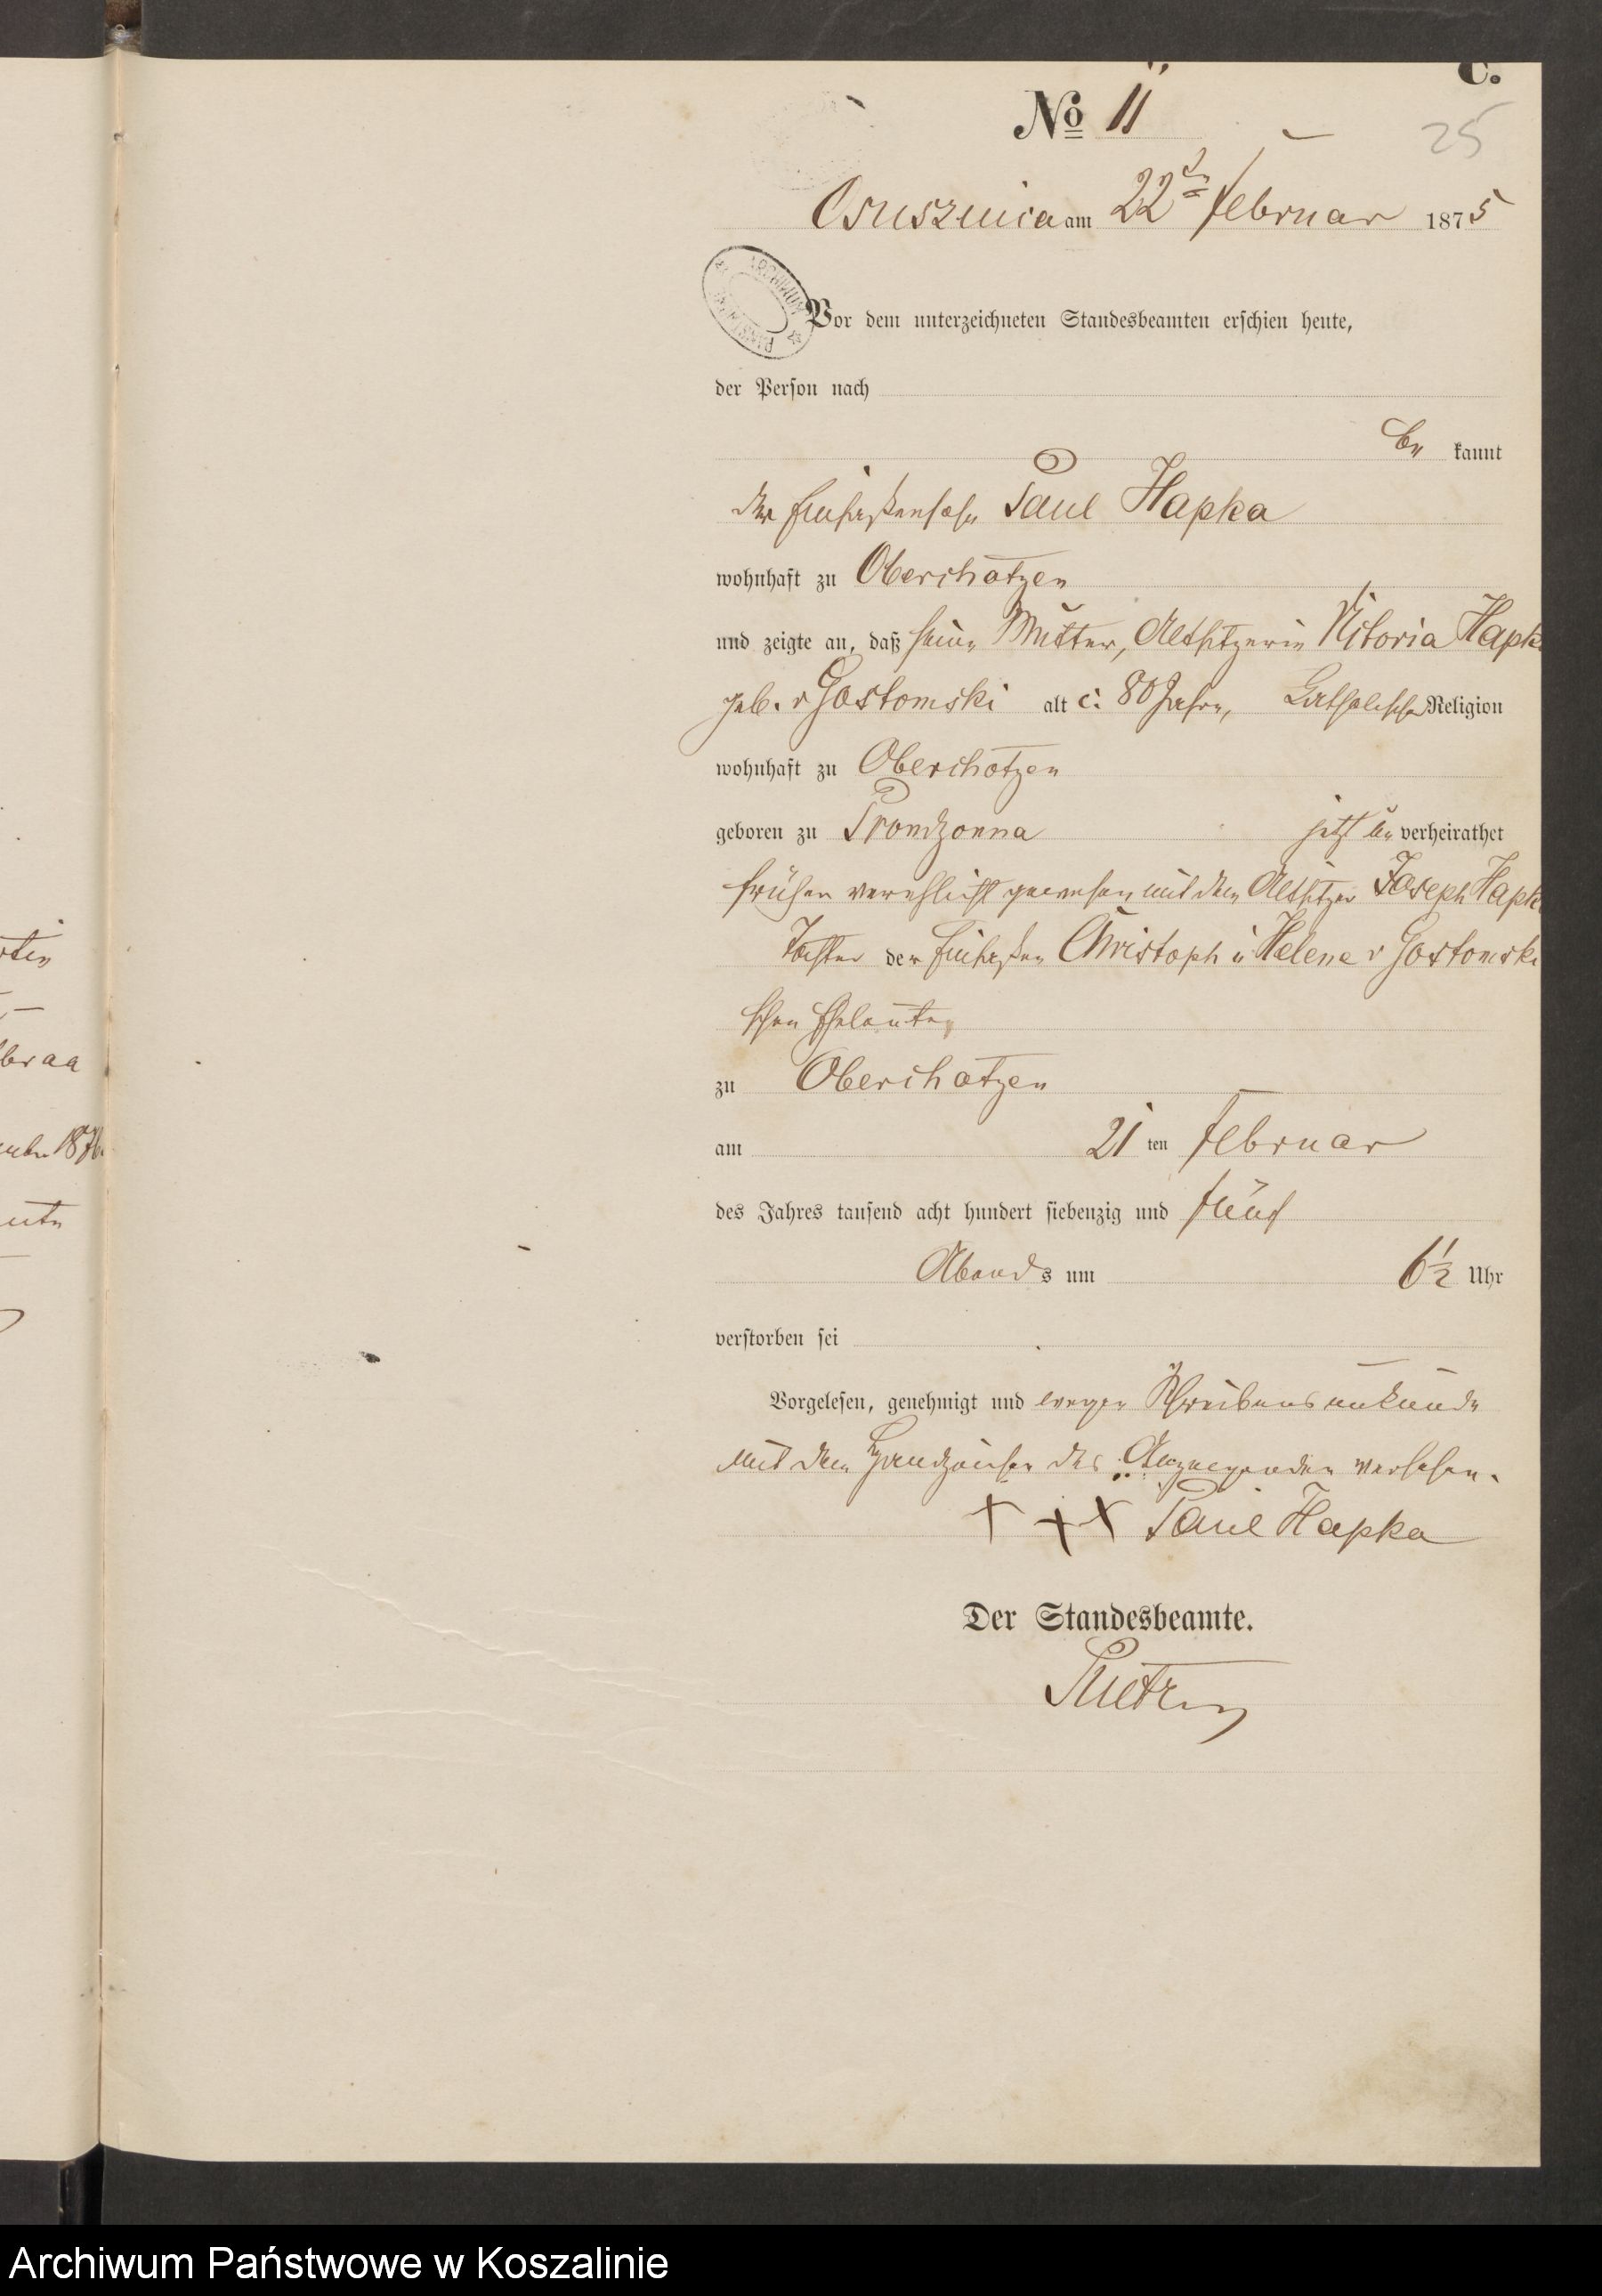 C.
No 11
25
Osusznica am 22ten Februar 1875
ARCHIWUM
Vor dem unterzeichneten Standesbeamten erschien heute,
der Person nach
be kannt
der Einsaßensohn Paul Hapka
wohnhaft zu Oberchotzen
und zeigte an, daß seine Mutter, Altsitzerin Vitoria Hapk
geb. v Gostomski alt c. 80 Jahre, katholischer Religion
wohnhaft zu Oberchotzen
geboren zu Prondzonna jetzt un verheirathet
früher verehlicht gewesen mit dem Altsitzer Joseph Hapk
Tochter der Einsaßen Christoph u Helene v Gostomski
schen Eheleute
zu Oberchotzen
am 21 ten Februar
des Jahres tausend acht hundert siebenzig und fünf
Abends um 6½ Uhr
verstorben sei
Vorgelesen, genehmigt und wegen Schreibensunkunde
mit dem Handzeichen des Anzeigenden versehen.
+ + + Paul Hapka
Der Standesbeamte.
1876
Archiwum Państwowe w Koszalinie